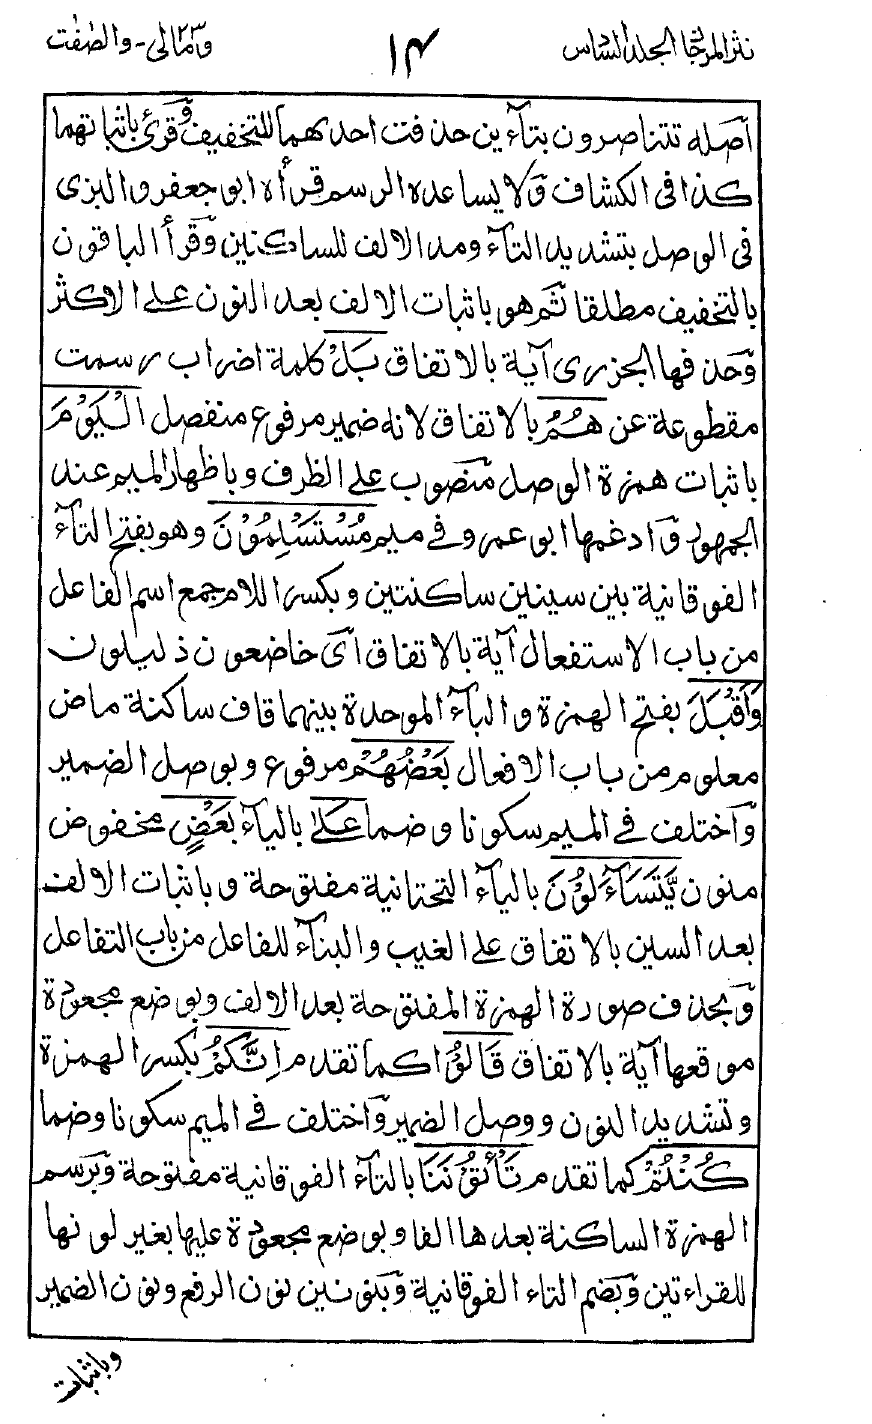 نثر المرجان المجلد السادس
١٤
ومالی ٢٣ - والصفت
اصله تتناصرون بتآءين حذفت احدىهما للتخفيف وقرئ باثباتهما
كذا فی الكشاف ولا يساعده الرسم قرأه ابو جعفر والبزی
فی الوصل بتشديد التآء ومد الالف للساكنين وقرأ الباقون
بالتخفيف مطلقا ثم هو باثبات الالف بعد النون على الاكثر
وحذفها الجزری آية بالاتفاق بَلْ كلمة اضراب رسمت
مقطوعة عن هُمُ بالاتفاق لانه ضمير مرفوع منفصل الْيَوْمَ
باثبات همزة الوصل منصوب على الظرف وباظهار الميم عند
الجمهور وادغمها ابو عمرو فے ميم مُسْتَسْلِمُوْنَ وهو بفتح التآء
الفوقانية بين سينين ساكنتين وبكسر اللام جمع اسم الفاعل
من باب الاستفعال آية بالاتفاق آی خاضعون ذليلون
وَاَقْبَلَ بفتح الهمزة والبآء الموحدة بينهما قاف ساكنة ماض
معلوم من باب الافعال بَعْضُهُمْ مرفوع وبوصل الضمير
واختلف فے الميم سكونا وضما عَلٰے باليآء بَعْضٍ مخفوض
منون يَّتَسَآءَلُوْنَ باليآء التحتانية مفتوحة وباثبات الالف
بعد السين بالاتفاق على الغيب والبنآء للفاعل من باب التفاعل
وبحذف صورة الهمزة المفتوحة بعد الالف وبوضع مجعودة
موقعها آية بالاتفاق قَالُوْا كما تقدم اِنَّكُمْ بكسر الهمزة
وتشديد النون ووصل الضمير واختلف فے الميم سكونا وضما
كُنْتُمْ كما تقدم تَأْتُوْنَنَا بالتآء الفوقانية مفتوحة وبرسم
الهمزة الساكنة بعدها الفا وبوضع مجعودة عليها بغير لونها
للقراءتين وبضم التاء الفوقانية وبنونين نون الرفع ونون الضمير
وباثبات